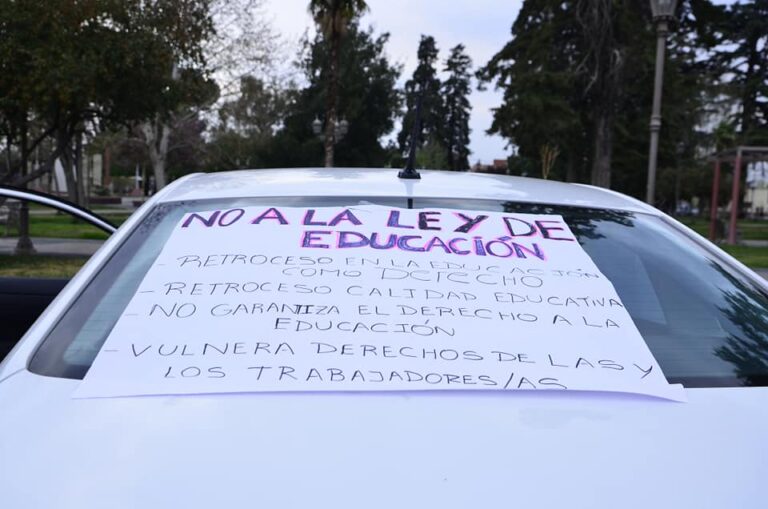 NO A LA LEY DE
EDUCACIÓN
- RETROCESO EN LA EDUCACIÓN
COMO DERECHO
- RETROCESO CALIDAD EDUCATIVA
- NO GARANTIZA EL DERECHO A LA
EDUCACIÓN
- VULNERA DERECHOS DE LAS Y
LOS TRABAJADORES/AS